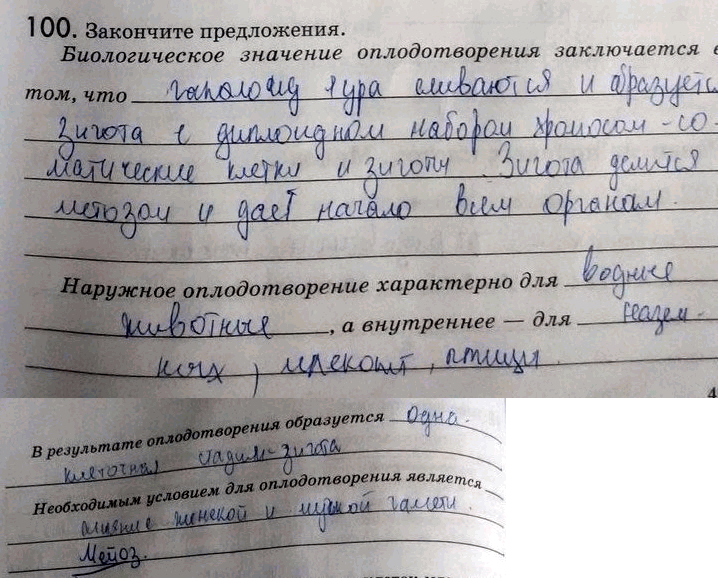 100. Закончите предложения.
Биологическое значение оплодотворения заключается в
том, что гаплоид ядра сливаются и образуется
зигота с диплоидном набором хромосом - со-
матические клетки и зиготы. Зигота делится
метозом и даёт начало всем органам.
Наружное оплодотворение характерно для водные
животные, а внутреннее — для назем-
ных, млекопит, птицы.
4
В результате оплодотворения образуется одно-
клеточная стадия - зигота
Необходимым условием для оплодотворения является
слияние женской и мужской гаметы.
Мейоз.